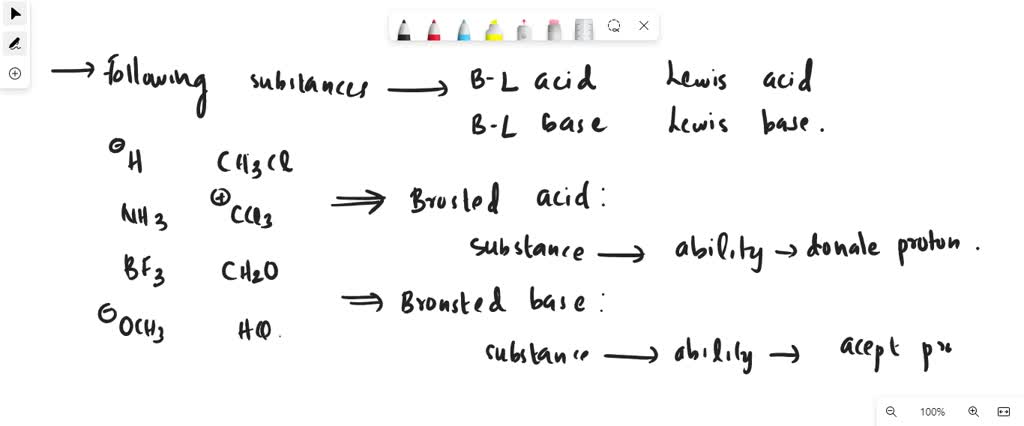 → Following substances → B-L acid Lewis acid
B-L base Lewis base.
⊖H CH3Cl
NH3 ⊕CCl3 ⇒ Brusted acid :
substance → ability → donate proton .
BF3 CH2O
⇒ Bronsted base :
⊖OCH3 HCl.
substance → ability → acept pr
100%